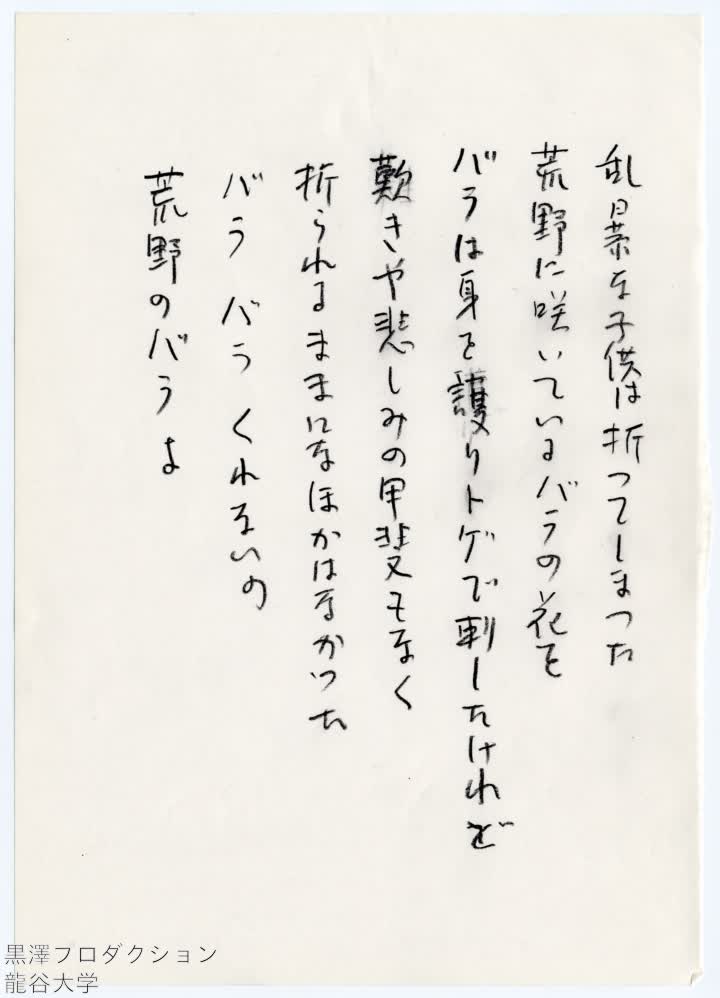 乱暴な子供は折つてしまつた
荒野に咲いているバラの花を
バラは身を護りトゲで刺したけれど
歎きや悲しみの甲斐もなく
折られるままになほかはなかつた
バラ バラ くれないの
荒野のバラよ
黒澤プロダクション
龍谷大学